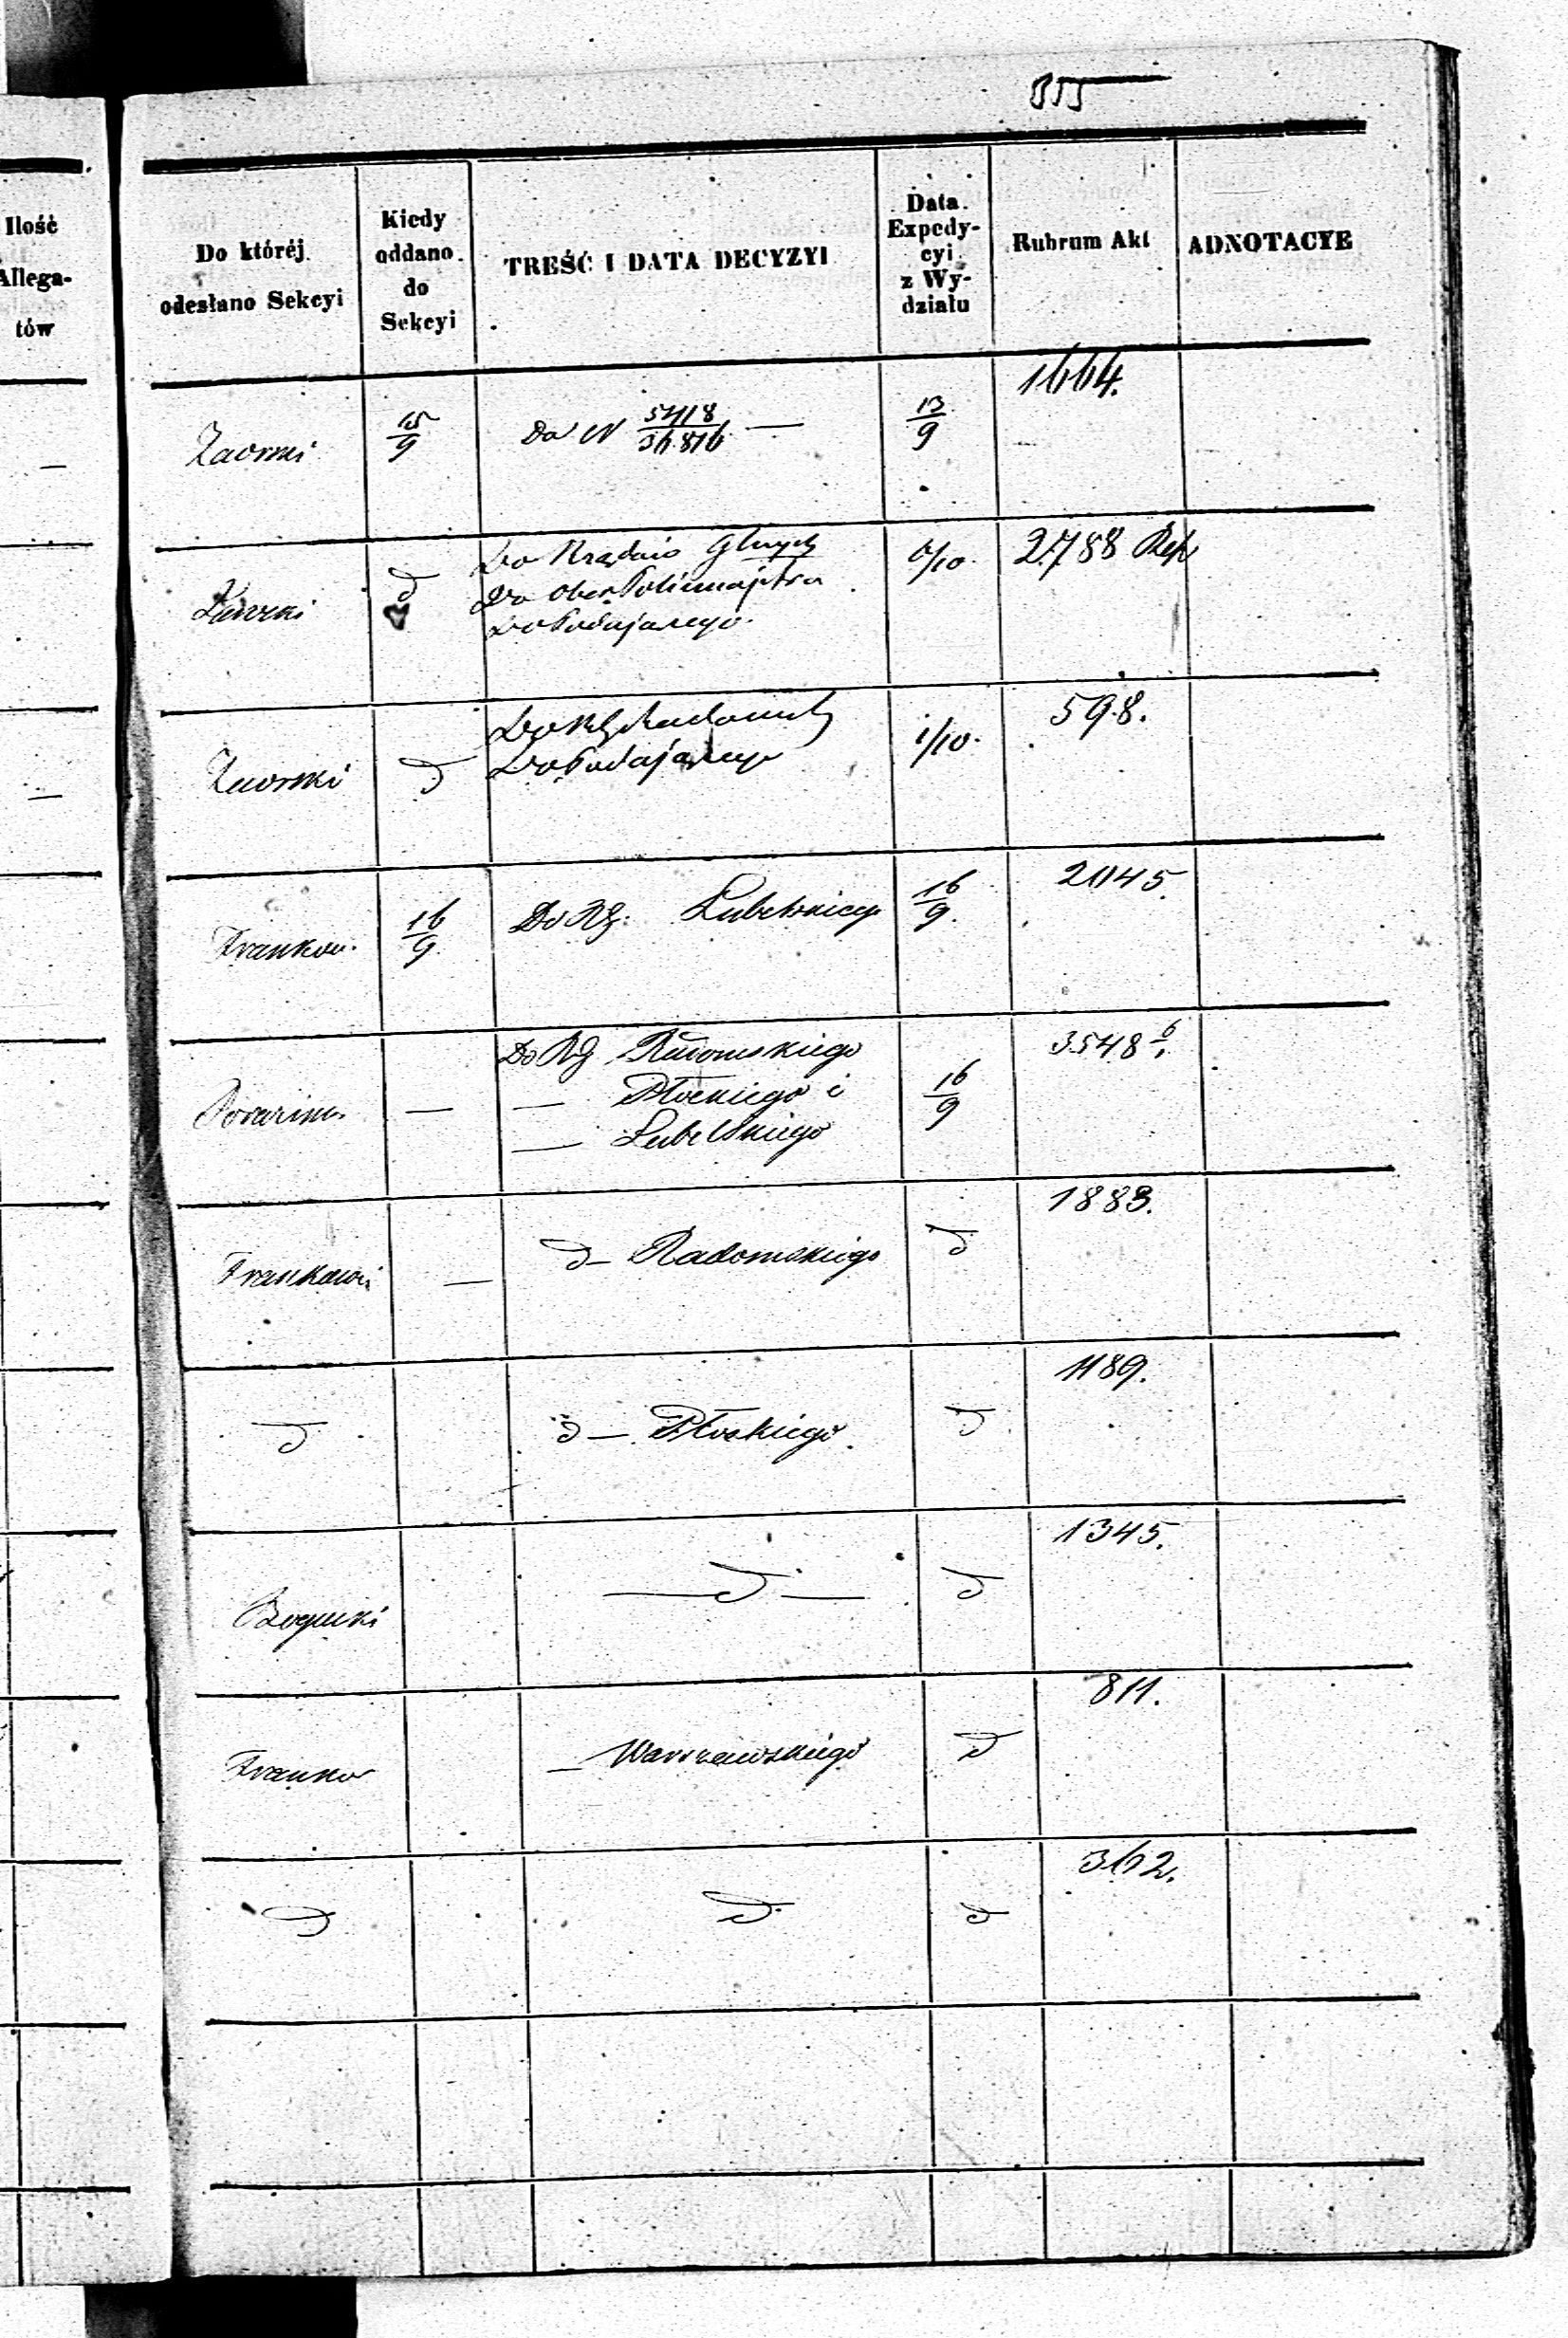 Ilość
Allega-
tów
Do któréj
odesłano Sekcyi
Kiedy
oddano
do
Sekcyi
TREŚĆ I DATA DECYZYI
Data
Expedy-
cyi
z Wy-
działu
Rubrum Akt
ADNOTACYE
15/9
Do N 5418/36.816 —
13/9
1664.
d
Do Rządów Glnych
Do OberPolicmajstra
Do Podającego
6/10.
2788 Rep
Zaorski
d
Do RG Radomsk
Do Podającego
1/10.
598.
Frankow.
16/9.
Do RG. Lubelskiego
16/9.
2045
—
Do RG Radomskiego
— Płockiego i
— Lubelskiego
16/9
3548 6.
Frankowi
—
d — Radomskiego
d
1883.
d
d — Płockiego.
d
1189.
Bogucki
— d —
d
1345.
Franko
— Warszawskiego
d
811.
d
d
d
362.